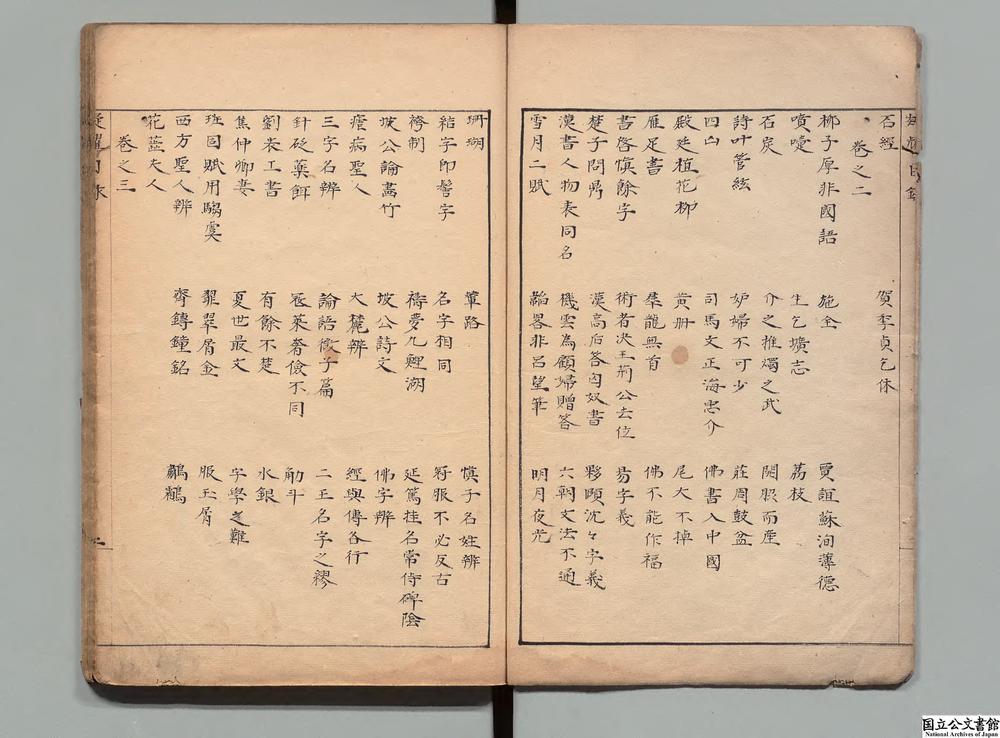 石經　賀李貞乞休
卷之二
柳子厚非國語　施全　賈誼蘇洵薄德
噴嚏　生乞壙志　荔枝
石炭　介之推燭之武　開服而產
詩叶管絃　妒婦不可少　莊周鼓盆
四凶　司馬文正海忠介　佛書入中國
殿廷植花柳　黃冊　尾大不掉
雁足書　羣龍無首　佛不能作福
書啓慎餘字　術者决王荊公去位　易字義
楚子問鼎　漢高后答匈奴書　夥頤沈々字義
漢書人物表同名　機雲為顧婦贈答　六朝文法不通
雪月二賦　韜畧非呂望筆　明月夜光
珊瑚　輦路　慎子名姓辨
結字即髻字　名字相同　服不必反古
袴制　禱夢九鯉湖　延篤挂名常侍碑陰
坡公論畫竹　坡公詩文　佛字辨
瘧病聖人　大麓辨　經與傳各行
三字名辨　論語微子篇　二王名字之繆
針砭藥餌　寇萊奢儉不同　觔斗
劉表工書　有餘不楚　水銀
焦仲卿妻　夏世最文　字學之難
班固賦用騶虞　翡翠屑金　服玉屑
西方聖人辨　齊鎛鐘銘　鸕鶿
花蕊夫人
卷之三
国立公文書館
National Archives of Japan